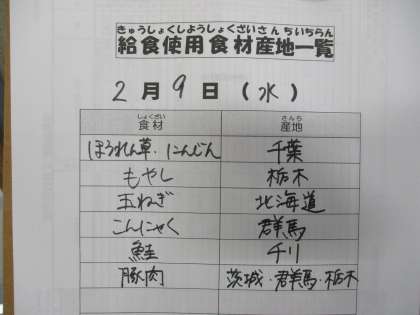 きゅうしょくしようしょくざいさんちいちらん
給食使用食材産地一覧
2月9日(水)
しょくざい さんち
食材 産地
ほうれん草・にんじん 千葉
もやし 栃木
玉ねぎ 北海道
こんにゃく 群馬
鮭 チリ
豚肉 茨城・群馬・栃木